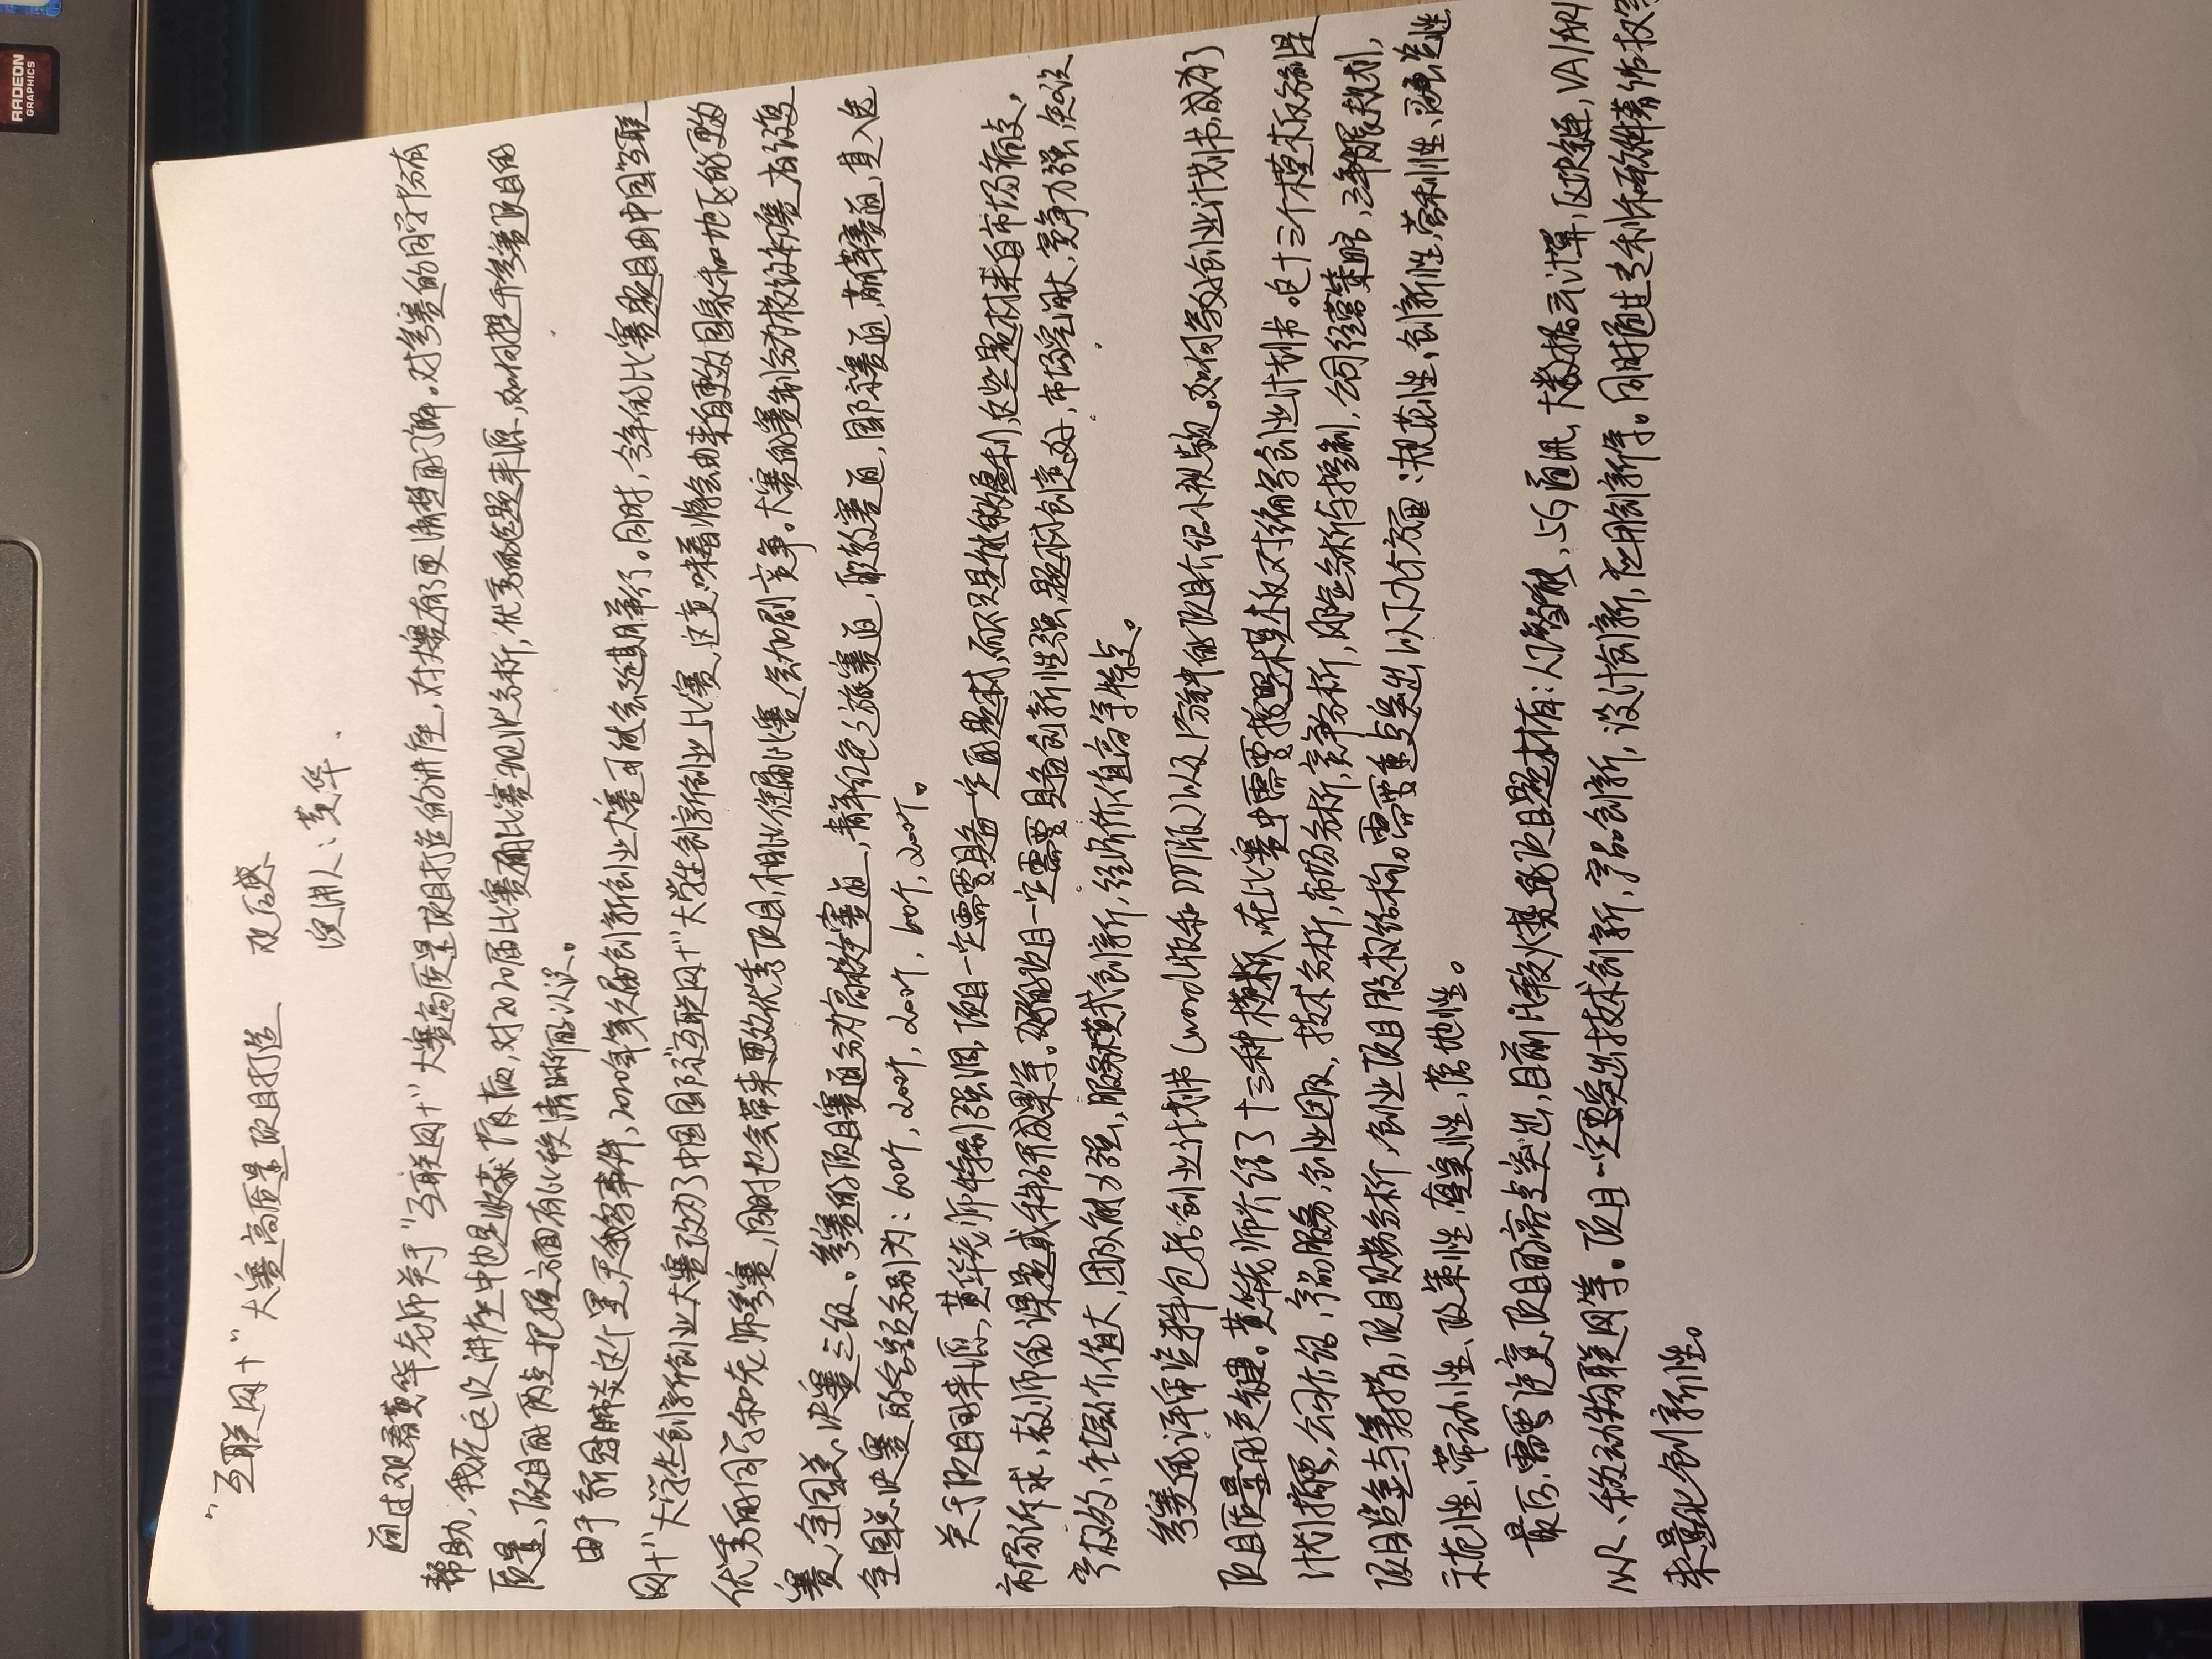 RADEON
GRAPHICS
"互联网+"大赛高质量项目打造 观后感
演讲人:黄华.
通过观看黄华老师关于"互联网+"大赛高质量项目打造的讲座,对大赛有了更清楚的了解。对参赛的同学十分有
帮助,我在这次讲座中也是收获满满,对2020届比赛的比赛现状分析,优秀的选题来源,如何提升参赛项目的
质量,项目的两点把握方面有比较清晰的认识。
由于新冠肺炎这个黑天鹅事件,2020年第六届创新创业大赛可能会延期举行。同时,今年的比赛题目由中国"互联
网+"大学生创新创业大赛改为了中国国际"互联网+"大学生创新创业比赛,这意味着将会由来自更多国家和地区的更为
优秀的同学和老师参赛,同时也会带来更多优秀项目,相比往届比赛,会加剧竞争。大赛的赛制分为校级初赛,省级复
赛,全国总决赛三级。参赛的项目赛道分为高校主赛道,青年红色之旅赛道,职教赛道,国际赛道,萌芽赛道,其入选
全国总决赛的名额分别为:600个,200个,200个,60个,200个。
关于项目的来源,黄华老师特别强调,项目一定需要具备一定的题材,而不只是能够盈利,这些题材来自市场痛点,
市场诉求,教师的课题或科研成果等。好的项目一定需要具备创新性强,题材创意好,市场空间大,竞争力强,知识
产权多,社会价值大,团队能力强,服务模式创新,经济价值高等特点。
参赛的评审资料包括创业计划书(word版和PPT版)以及1分钟的项目介绍小视频。如何写好创业计划书,成为了
项目质量的关键。黄华老师介绍了十三种模板,在比赛中需要按照模板对编写创业计划书。这十三个模板分别是
计划摘要,公司介绍,产品服务,创业团队,技术分析,市场分析,竞争分析,风险分析与控制,公司经营策略,三年发展规划,
项目资金与筹措,项目财务分析,创业项目股权结构。需要重点突出以下九个方面:规范性,创新性,营利性、可塑造性
示范性,带动性、政策性,真实性,落地性。
最后,需要注意项目的亮点突出,目前比较火势的项目题材有:人工智能,5G通讯,大数据云计算,区块链,VA/AR/
MR、移动物联网等。项目一定要突出技术创新,产品创新,设计创新,应用创新等。同时通过专利和软件著作权等
来量化创新性。